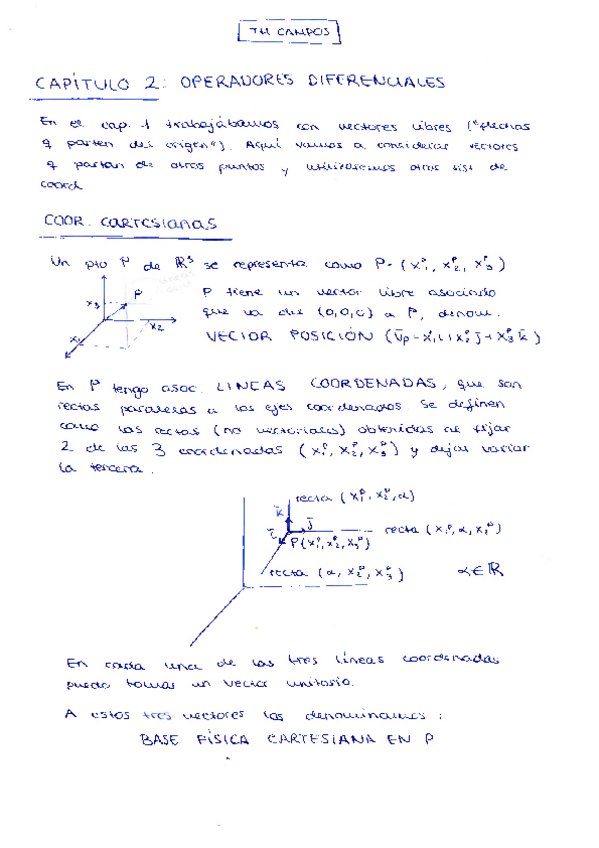 TH CAMPOS
CAPÍTULO 2: OPERADORES DIFERENCIALES
En el cap. 1 trabajábamos con vectores libres ("flechas
q parten del origen"). Aquí vamos a considerar vectores
q partan de otros puntos y utilizaremos otros sist. de
coord
COOR. CARTESIANAS
Un pto P de ℝ³ se representa como P=(x₁ᵖ, x₂ᵖ, x₃ᵖ)
x₃
P
x₂
x₁
P tiene un vector libre asociado
que va del (0,0,0) a P, denom.
VECTOR POSICIÓN (v̄p = x₁ᵖ ī + x₂ᵖ j̄ + x₃ᵖ k̄)
En P tengo asoc. LINEAS COORDENADAS, que son
rectas paralelas a los ejes coordenados. Se definen
como las rectas (no vectoriales) obtenidas al fijar
2 de las 3 coordenadas (x₁ᵖ, x₂ᵖ, x₃ᵖ) y dejar variar
la tercera.
recta (x₁ᵖ, x₂ᵖ, α)
k̄
j̄
recta (x₁ᵖ, α, x₃ᵖ)
ī
P(x₁ᵖ, x₂ᵖ, x₃ᵖ)
recta (α, x₂ᵖ, x₃ᵖ)
α ∈ ℝ
En cada una de las tres líneas coordenadas
puedo tomar un vector unitario.
A estos tres vectores los denominamos:
BASE FÍSICA CARTESIANA EN P